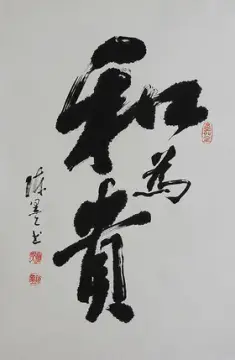 和為貴
陳墨书